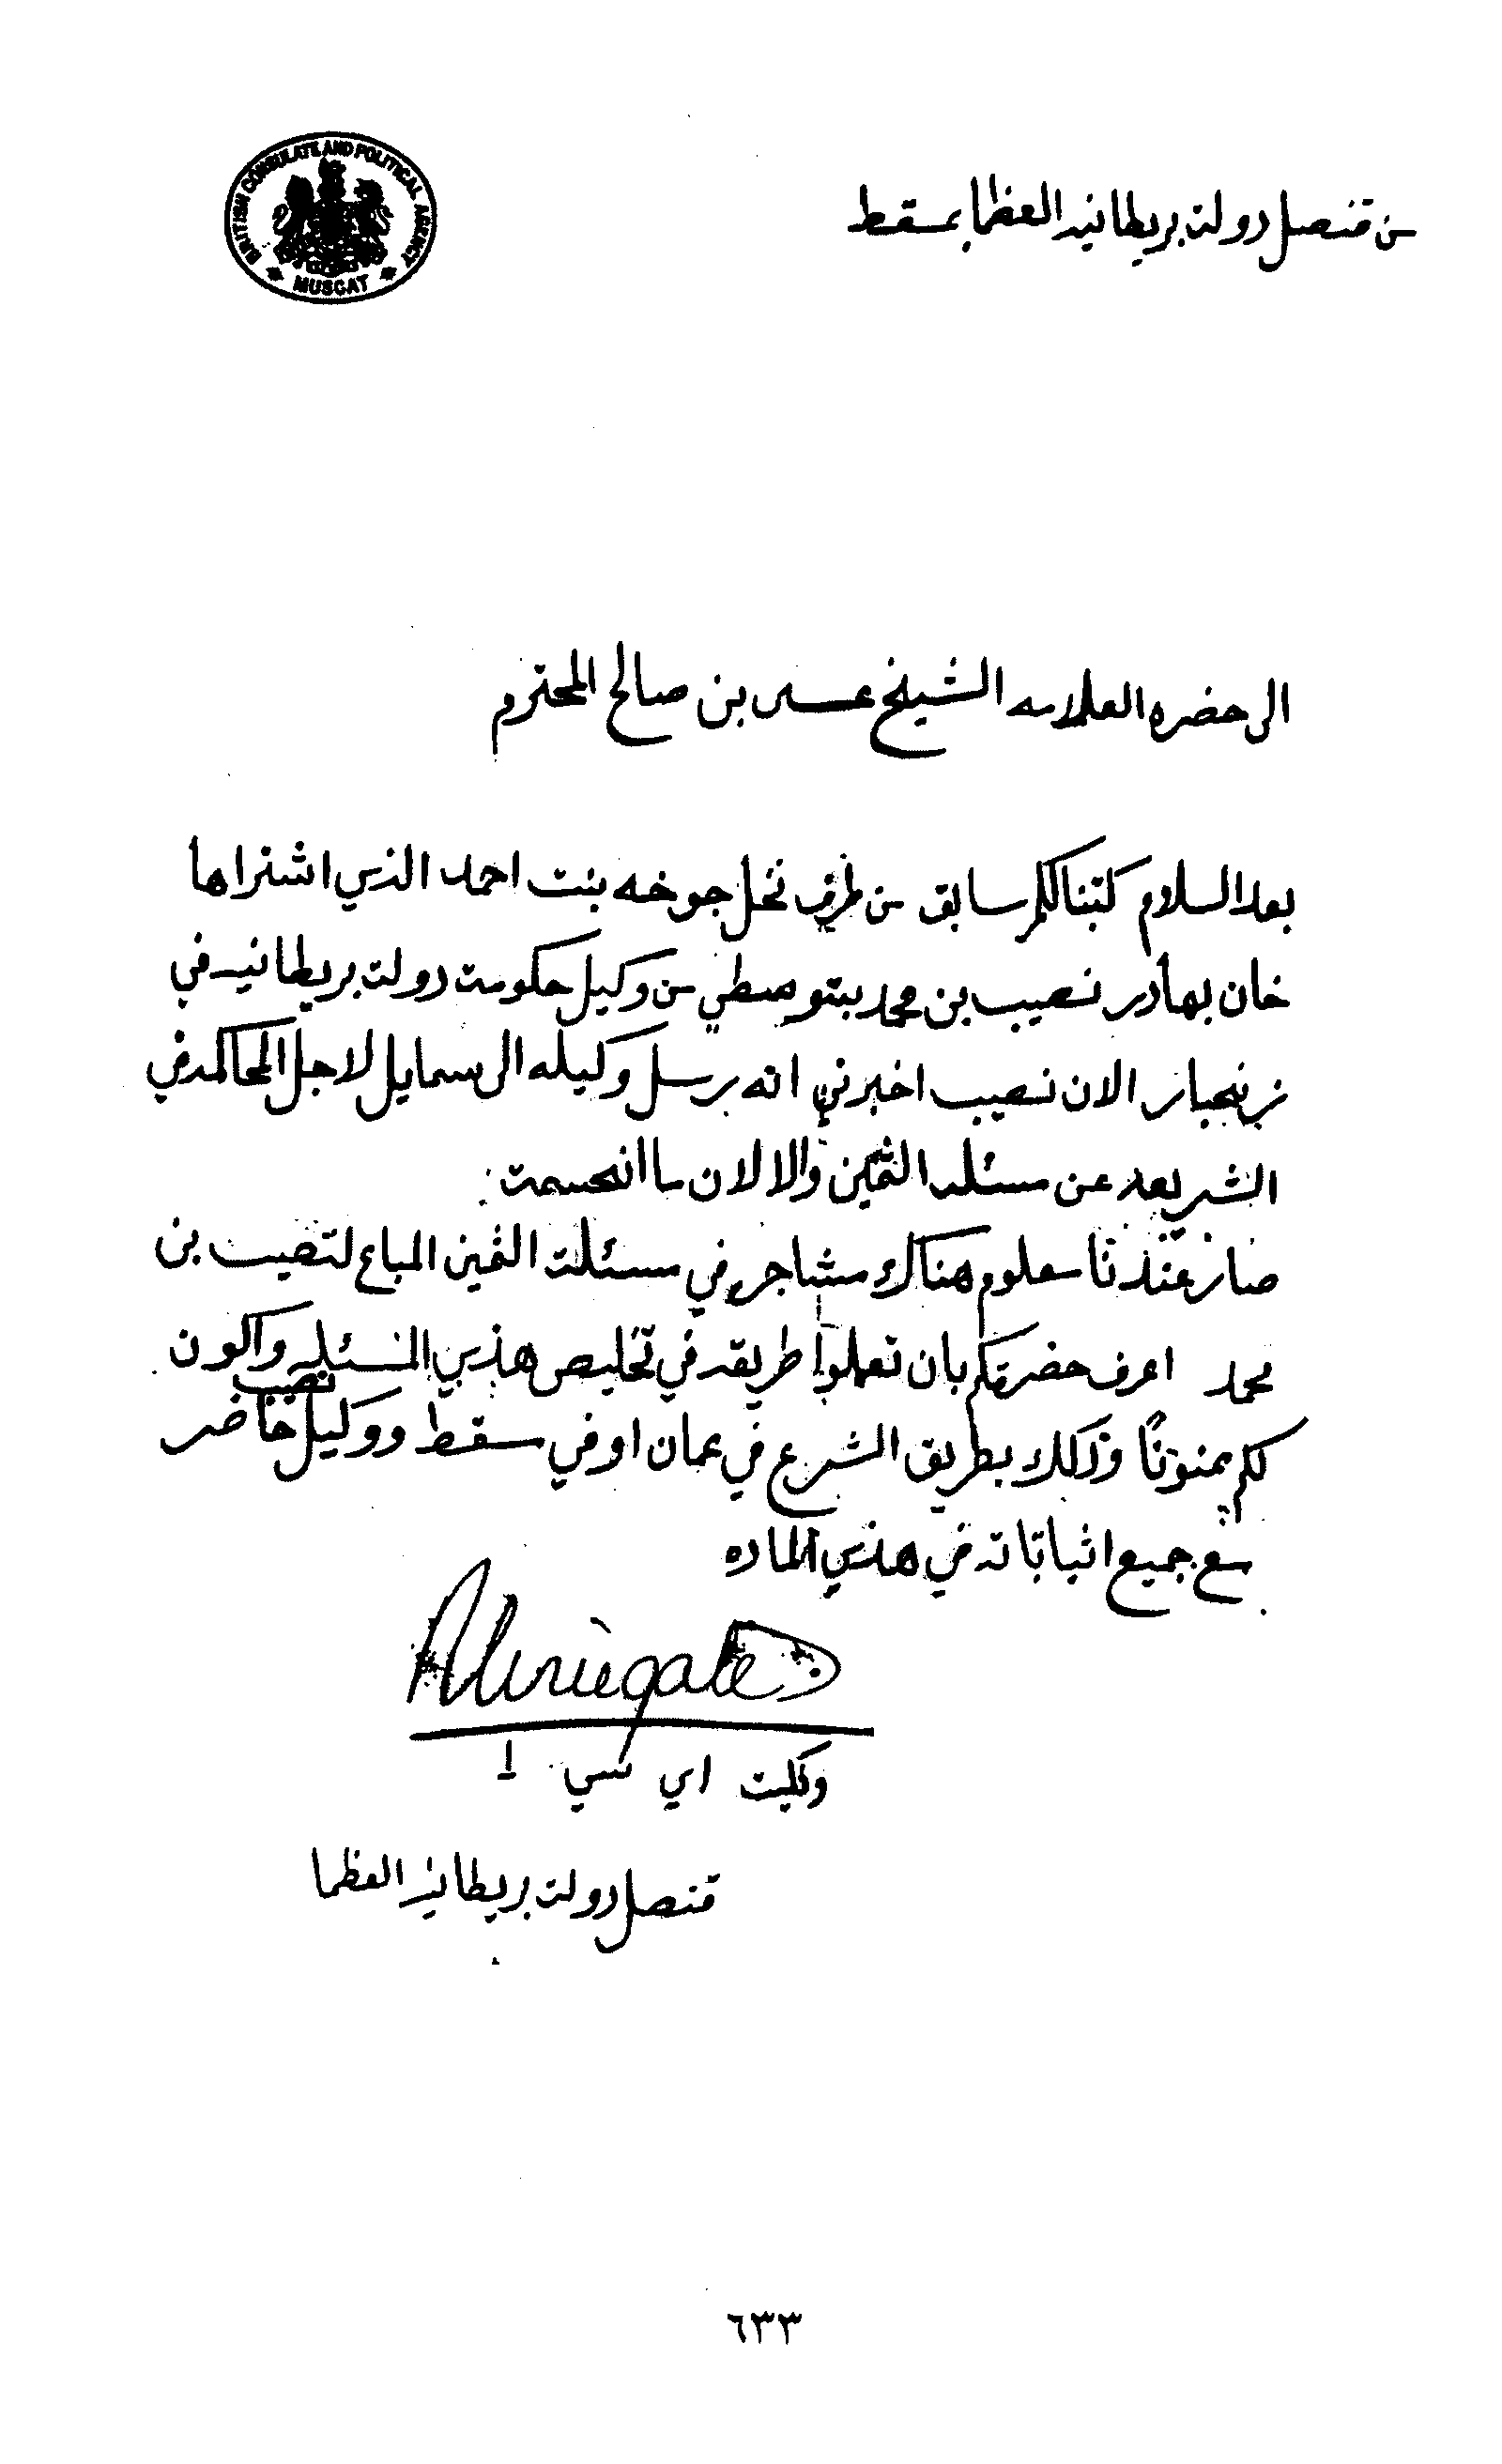 BRITISH CONSULATE AND POLITICAL AGENCY
MUSCAT
من قنصل دولت بريطانيه العظما بمسقط
الى حضره العلامه الشيخ عيسى بن صالح المحترم
بعد السلام كتبنا لكم سابق من طرف نخل جوخه بنت احمد الذي اشتراها
خان بهادر نصيب بن محمد بتوصطي من وكيل حكومت دولت بريطانيه في
زنجبار الان نصيب اخبرني انه يرسل وكيله الى سمايل لاجل المحاكمه في
الشريعه عن مسئله الثمين والا الان ما انحسمت
صار عندنا معلوم هناك مشاجره في مسئلت الثمين المباع لنصيب بن
محمد اعرف حضرتكم بان تعملوا طريقه في تخليص هذي المسئله واكون
لكم ممنونًا وذلك بطريق الشرع في عمان او في مسقط ووكيل نصيب حاضر
مع جميع اثباتاته في هذي الماده
وكليت اي سي ا
قنصل دولت بريطانيه العظما
٦٣٣